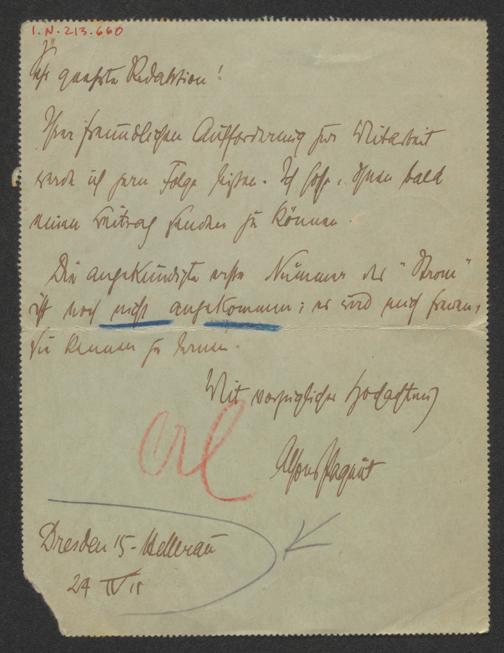 I.N. 213.660
Sehr geehrte Redaktion!
Ihrer freundlichen Aufforderung zur Mitarbeit
werde ich gern Folge leisten. Ich hoffe, Ihnen bald
einen Beitrag senden zu können.
Die angekündigte erste Nummer des "Strom"
ist noch nicht angekommen; es wird mich freuen,
sie kennen zu lernen.
Mit vorzüglicher Hochachtung
Alfons Paquet
Dresden 15-Hellerau
24 IV